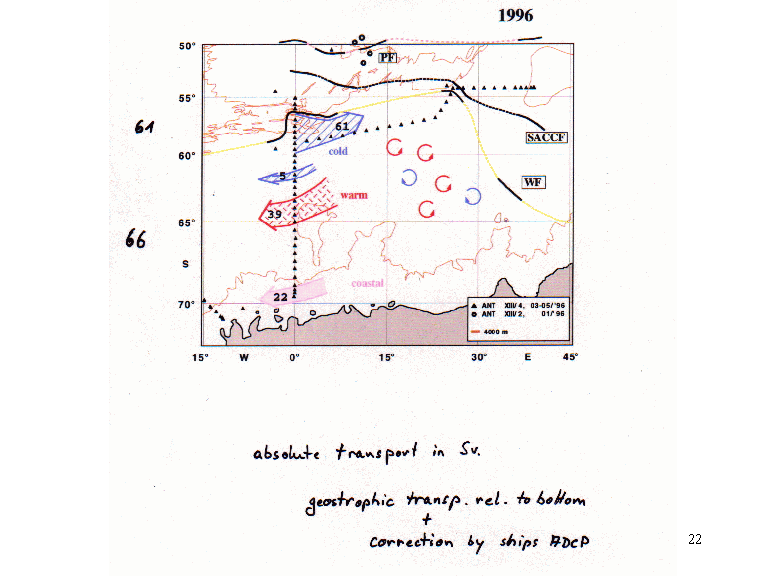 1996
50°
PF
55°
61 61
SACCF
60°
cold
5
WF
warm
39
65°
66
S
coastal
22
70°
ANT XIII/4, 03-05/'96
ANT XIII/2, 01/'96
4000 m
15° W 0° 15° 30° E 45°
absolute transport in Sv.
geostrophic transp. rel. to bottom
+
correction by ships ADCP
22